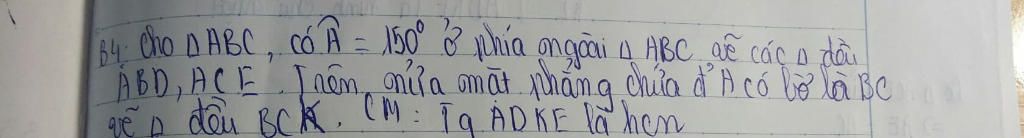 B4. Cho Δ ABC, có Â = 150° ở phía ngoài Δ ABC vẽ các Δ đều
ABD, ACE. Trên nửa mặt phẳng chứa đ' A có bờ là BC
vẽ Δ đều BCK. CM: Tg ADKE là hbh